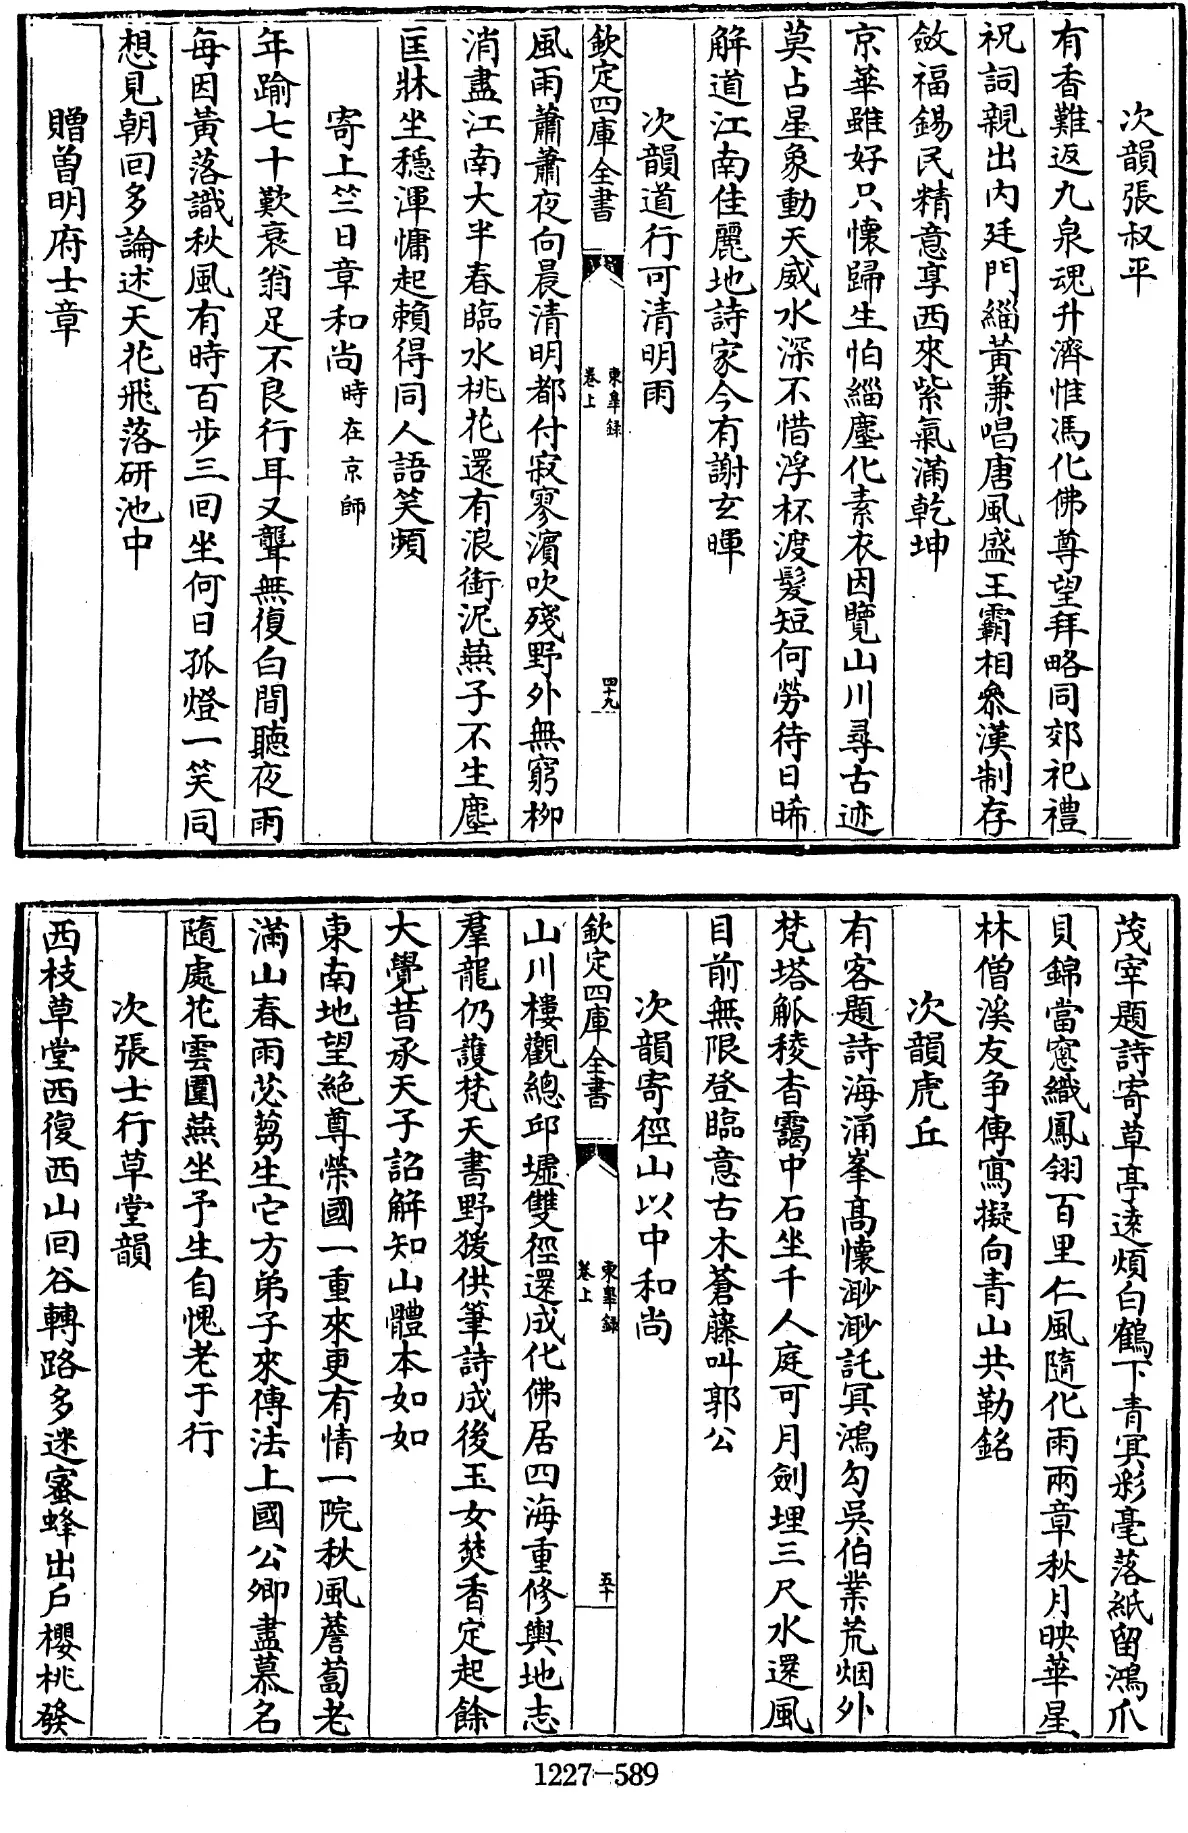 次韻張叔平
有香難返九泉魂升濟惟馮化佛尊望拜略同郊祀禮
祝詞親出内廷門緇黃兼唱唐風盛王霸相叅漢制存
斂福錫民精意享西來紫氣滿乾坤
京華雖好只懷歸生怕緇塵化素衣因覽山川尋古迹
莫占星象動天威水深不惜浮杯渡髮短何勞待日晞
解道江南佳麗地詩家今有謝玄暉
次韻道行可清明雨
欽定四庫全書
東臯録
卷上
四十九
風雨蕭蕭夜向晨清明都付寂寥濱吹殘野外無窮柳
消盡江南大半春臨水桃花還有浪銜泥燕子不生塵
匡牀坐穩渾慵起賴得同人語笑頻
寄上竺日章和尚時在京師
年踰七十歎衰翁足不良行耳又聾無復白間聽夜雨
每因黃落識秋風有時百步三回坐何日孤燈一笑同
想見朝回多論述天花飛落研池中
贈曾明府士章
茂宰題詩寄草亭遠煩白鶴下青冥彩毫落紙留鴻爪
貝錦當窻織鳳翎百里仁風隨化雨兩章秋月映華星
林僧溪友争傳寫擬向青山共勒銘
次韻虎丘
有客題詩海涌峯髙懷渺渺託冥鴻勾吳伯業荒烟外
梵塔觚稜杳靄中石坐千人庭可月劍埋三尺水還風
目前無限登臨意古木蒼藤叫郭公
次韻寄徑山以中和尚
欽定四庫全書
東臯録
卷上
五十
山川樓觀總邱墟雙徑還成化佛居四海重修輿地志
羣龍仍護梵天書野猨供筆詩成後玉女焚香定起餘
大覺昔承天子詔解知山體本如如
東南地望絶尊榮國一重來更有情一院秋風薝蔔老
滿山春雨苾芻生它方弟子來傳法上國公卿盡慕名
隨處花雲圍燕坐予生自愧老于行
次張士行草堂韻
西枝草堂西復西山回谷轉路多迷蜜蜂出戶櫻桃發
1227-589